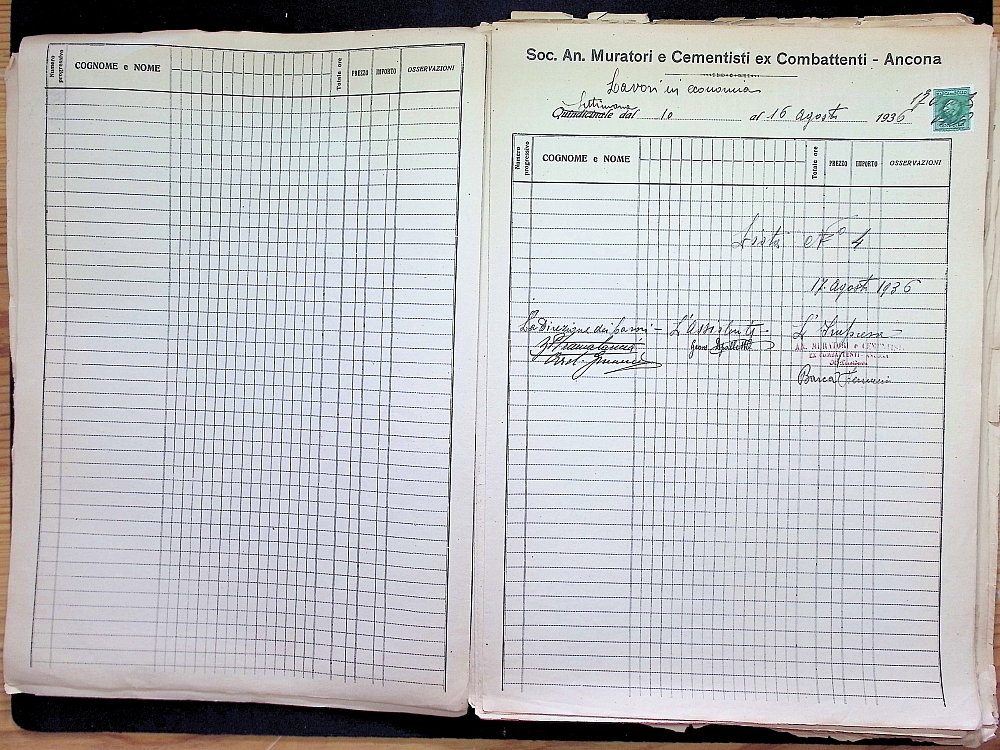 Numero progressivo COGNOME e NOME Totale ore PREZZO IMPORTO OSSERVAZIONI
Soc. An. Muratori e Cementisti ex Combattenti - Ancona
Lavori in economia
Settimana
Quindicinale dal 10 al 16 agosto 1936
Numero progressivo COGNOME e NOME Totale ore PREZZO IMPORTO OSSERVAZIONI
Lista N° 4
17 agosto 1936
La Direzione dei lavori - L'Assistente - L'Impresa
AN. MURATORI e CEMENTISTI
EX COMBATTENTI - ANCONA